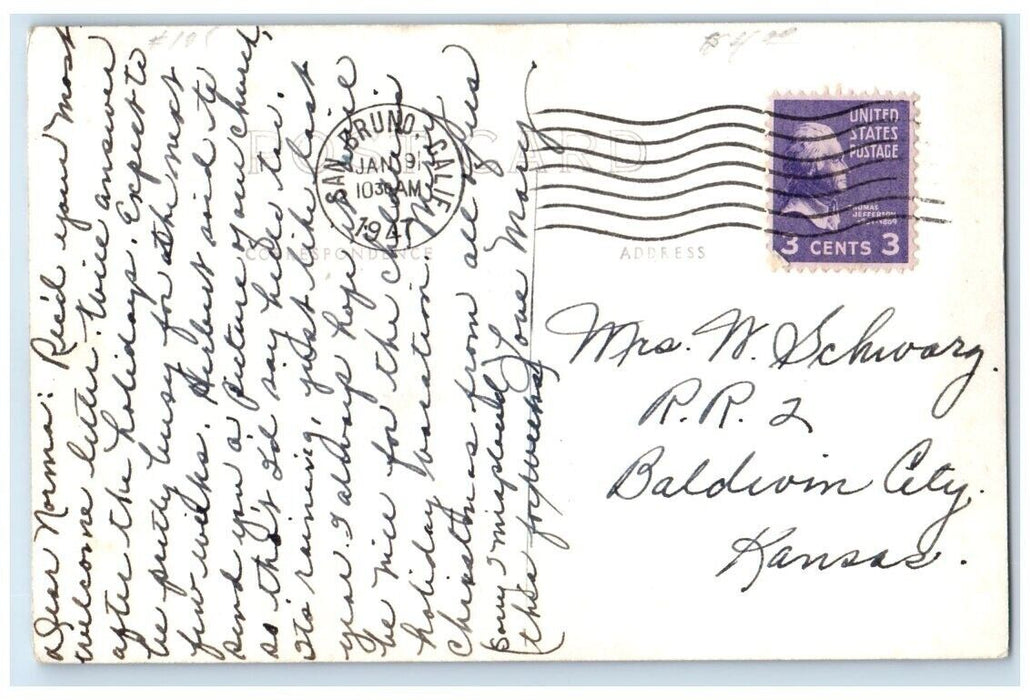 Dear Norma: Rec'd your most
welcome letter. Will answer
after the holidays. Expect to
be pretty busy for the next
few weeks. Herbert said to
send you a picture of our church,
so this I'd say hello too.
Its raining, just like last
year. I always hope it will
be nice for the children's
holiday vacation. Merry
Christmas from all of us
Love Mary
Sorry I misplaced
this for weeks
POST CARD
CORRESPONDENCE
ADDRESS
SAN BRUNO, CALIF.
JAN 9
1030 AM
1941
UNITED
STATES
POSTAGE
THOMAS
JEFFERSON
3 CENTS 3
Mrs. W. Schwarz
R.R. 2
Baldwin City,
Kansas.